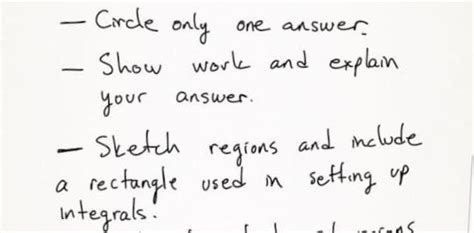 — Circle only one answer.
— Show work and explain
your answer.
— Sketch regions and include
a rectangle used in setting up
integrals.